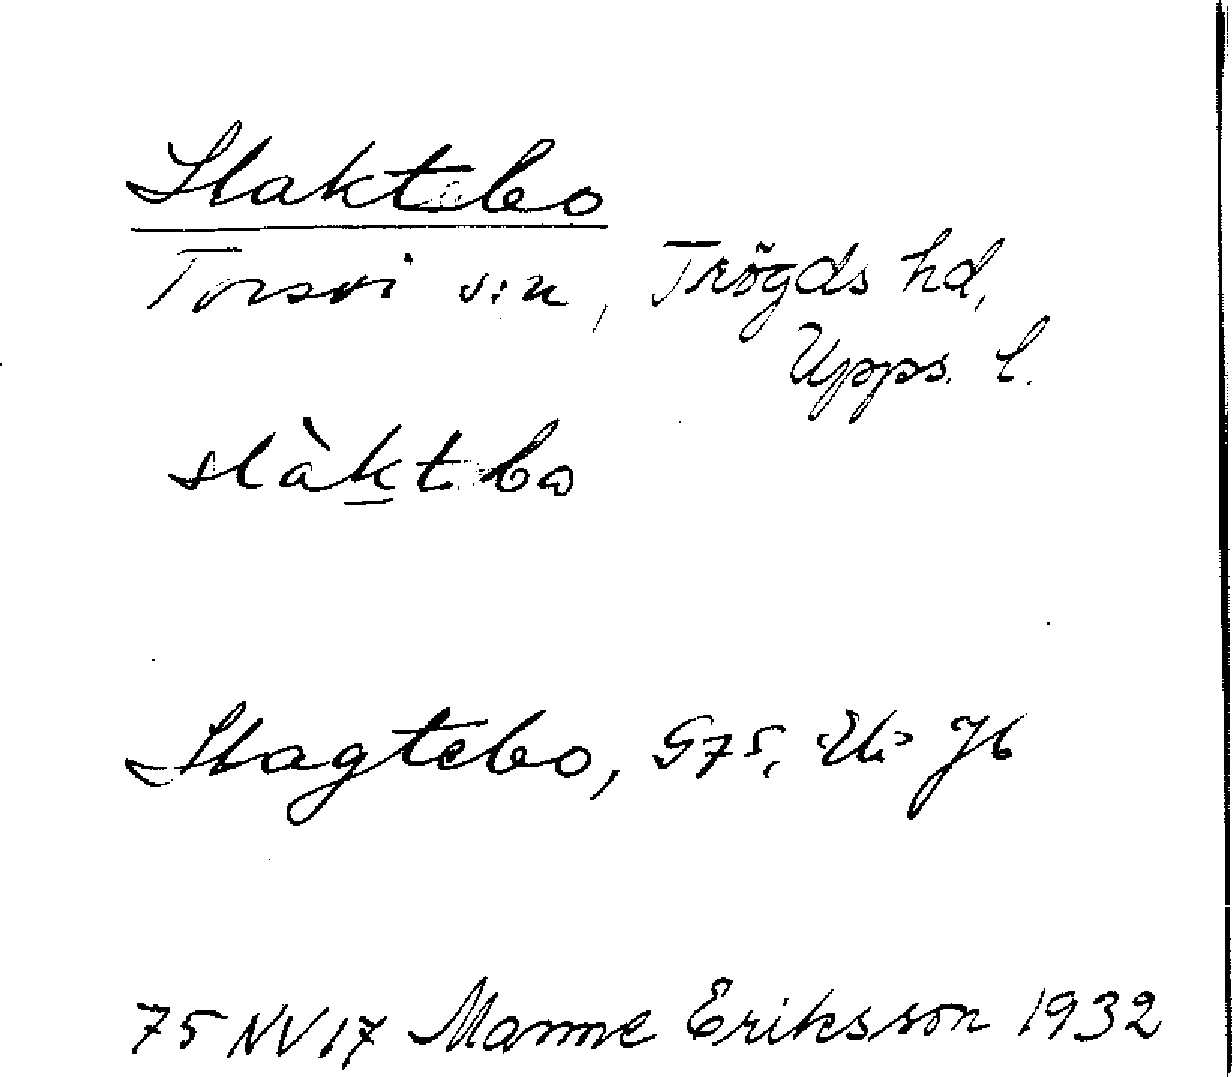 Slaktebo
Torsvi s:n, Trögds hd,
Upps. l.
slàktbo
Slagtebo, 575,
75 NV 17 Manne Eriksson 1932